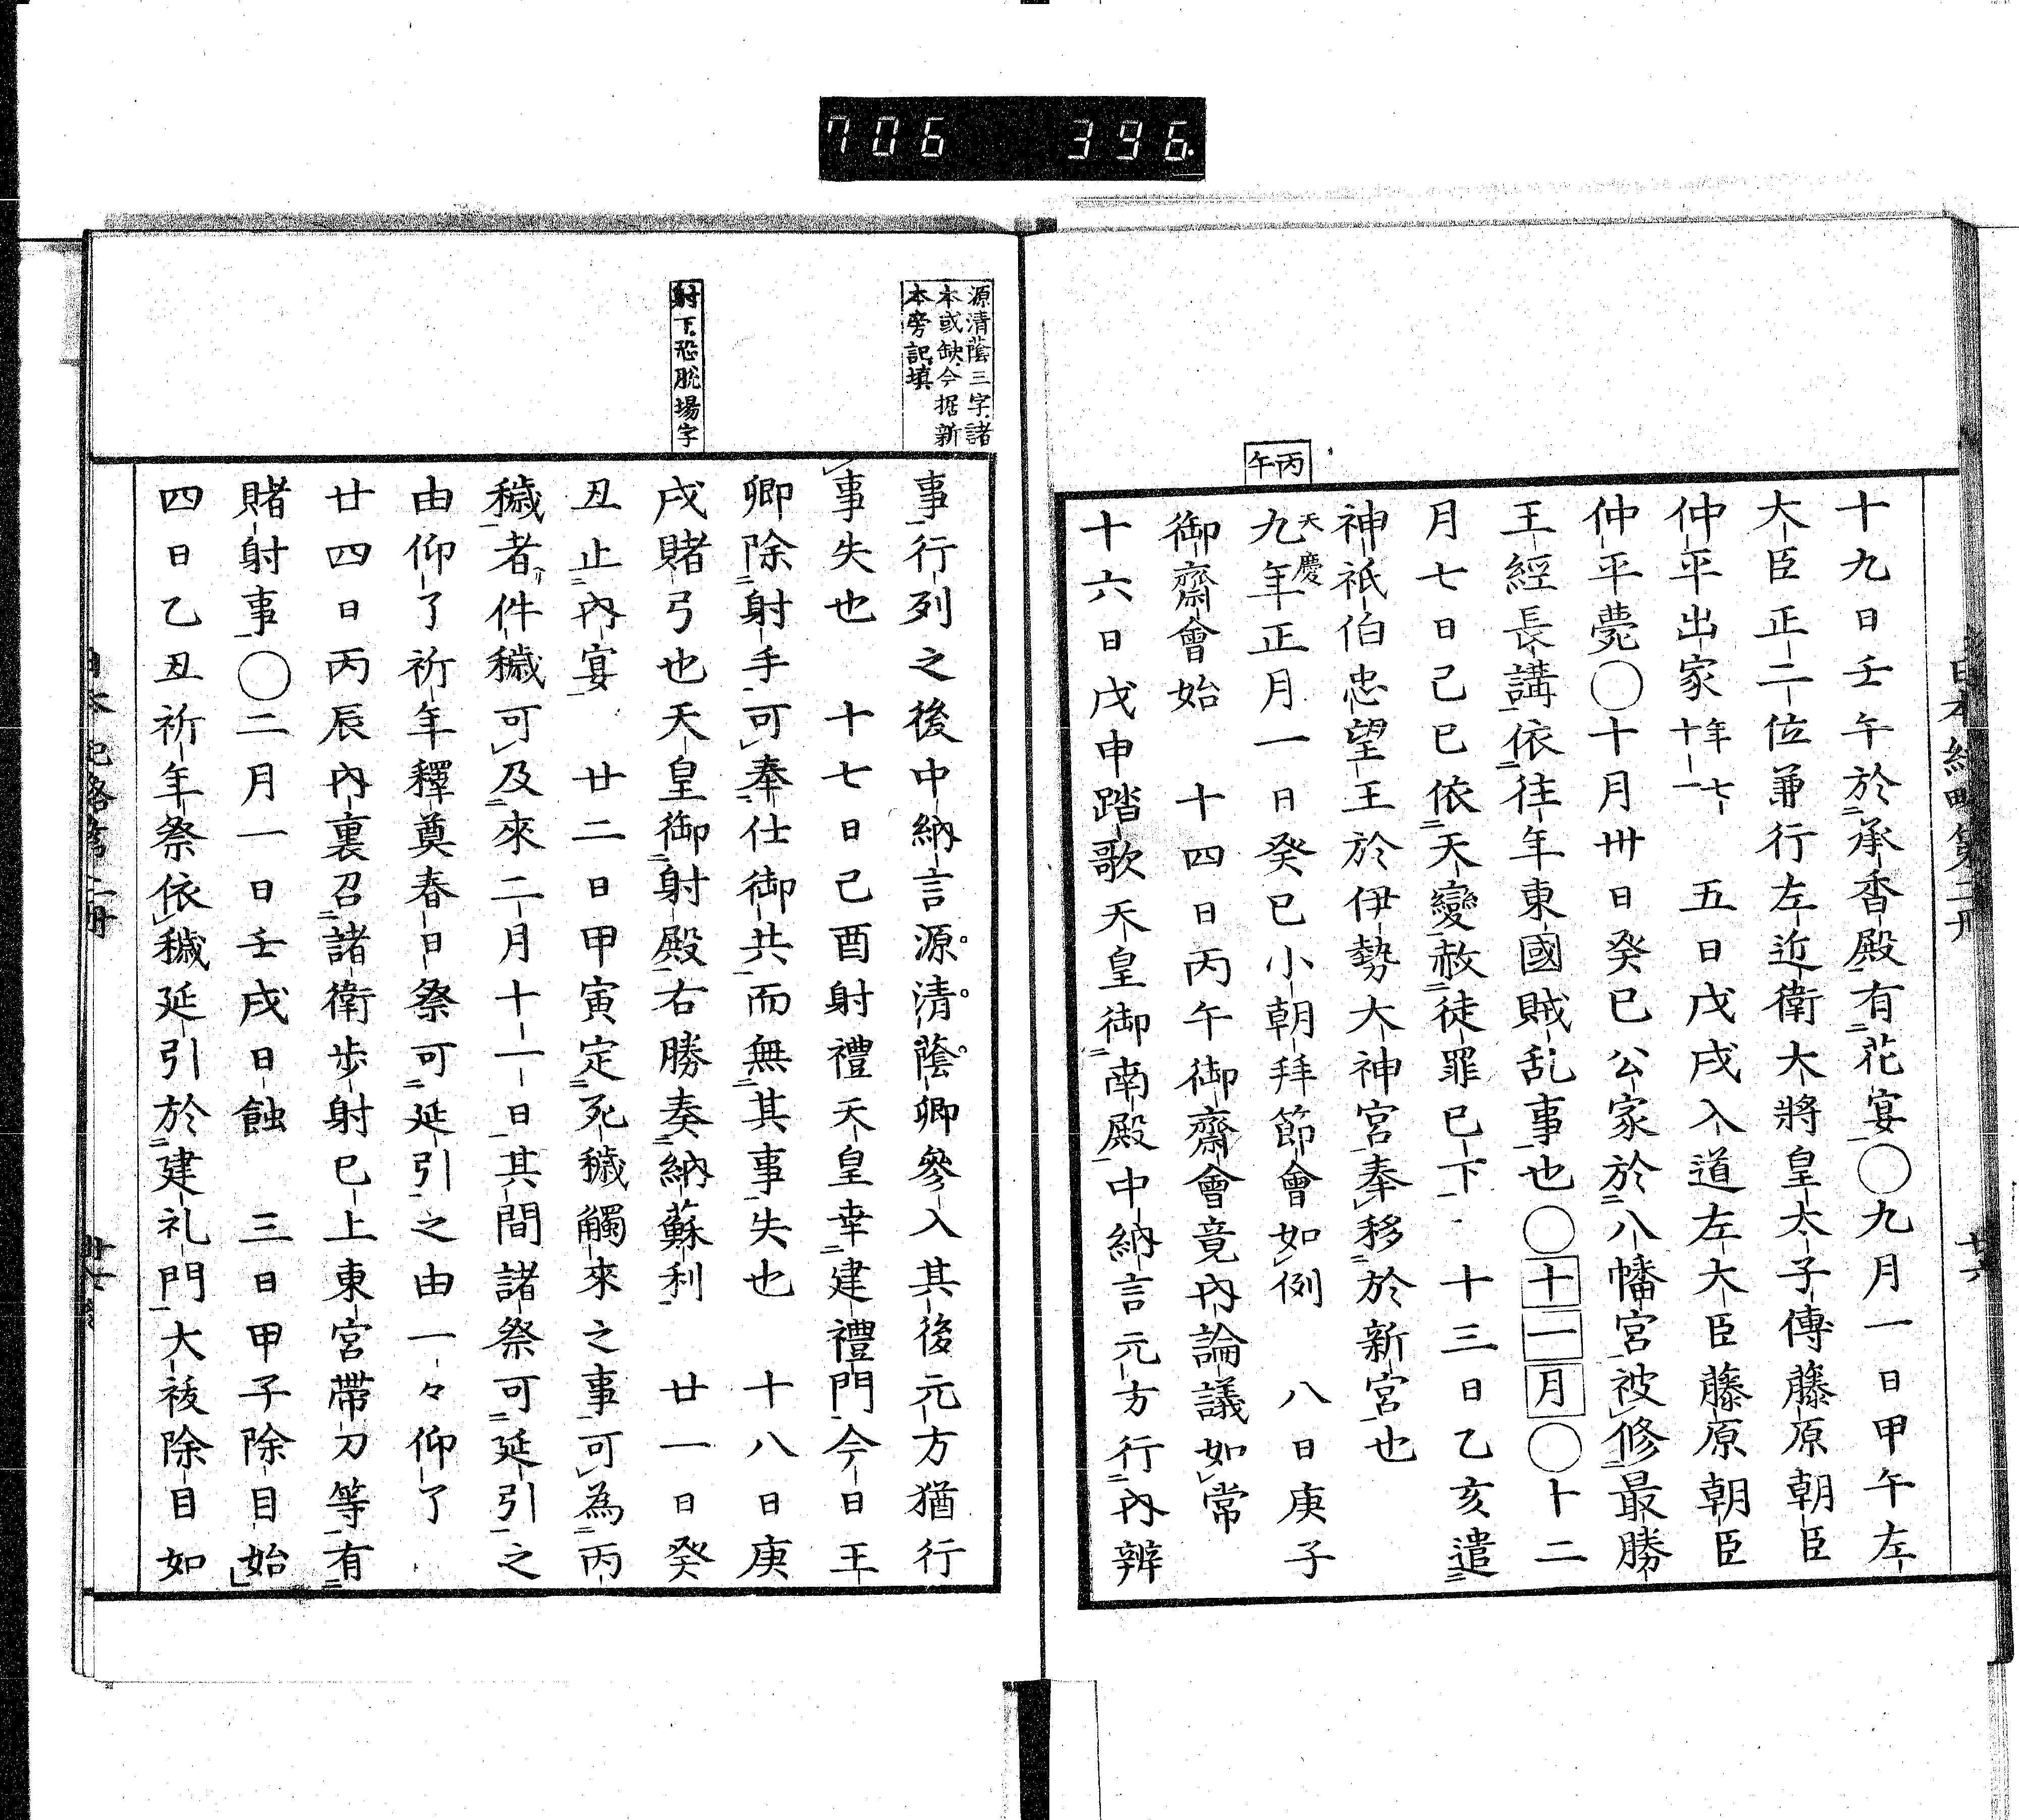 706 396.
十九日壬午於承香殿有花宴〇九月一日甲午左
大臣正二位兼行左近衛大將皇太子傳藤原朝臣
仲平出家年七十一 五日戊戌入道左大臣藤原朝臣
仲平薨〇十月卅日癸巳公家於八幡宮被修最勝
王經長講依往年東國賊乱事也〇十一月〇十二
月七日己巳依天變赦徒罪已下 十三日乙亥遣
神祇伯忠望王於伊勢大神宮奉移於新宮也
丙午
天慶九年正月一日癸巳小朝拜節會如例 八日庚子
御齋會始 十四日丙午御齋會竟內論議如常
十六日戊申踏歌天皇御南殿中納言元方行內辨
源清蔭三字諸
本或缺今据新
本旁記填
事行列之後中納言源清蔭卿參入其後元方猶行
事失也 十七日己酉射禮天皇幸建禮門今日王
卿除射手可奉仕御共而無其事失也 十八日庚
射下恐脫場字
戌賭弓也天皇御射殿右勝奏納蘇利 廿一日癸
丑止內宴 廿二日甲寅定死穢觸來之事可為丙
穢者件穢可及來二月十一日其間諸祭可延引之
由仰了祈年釋奠春日祭可延引之由一々仰了
廿四日丙辰內裏召諸衛步射已上東宮帶刀等有
賭射事〇二月一日壬戌日蝕 三日甲子除目始
四日乙丑祈年祭依穢延引於建礼門大祓除目如